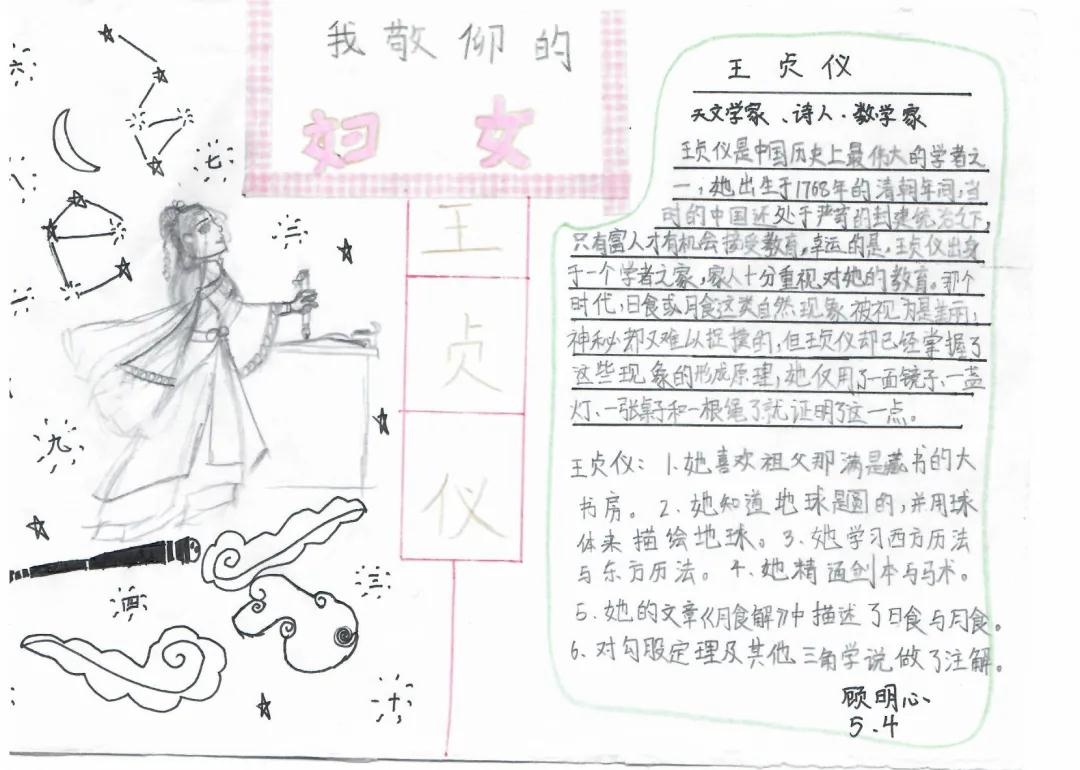 我敬仰的
妇女
王
贞
仪
六
七
二
九
三
四
十
王贞仪
天文学家、诗人.数学家
王贞仪是中国历史上最伟大的学者之
一，她出生于1768年的清朝年间，当
时的中国还处于严苛的封建统治之下，
只有富人才有机会接受教育，幸运的是，王贞仪出身
于一个学者之家，家人十分重视对她的教育。那个
时代，日食或月食这类自然现象被视为
神秘却又难以捉摸的，但王贞仪却已经掌握了
这些现象的形成原理，她仅用了一面镜子、一盏
灯、一张桌子和一根绳子就证明了这一点。
王贞仪：1.她喜欢祖父那满是藏书的大
书房。2.她知道地球是圆的，并用球
体来描绘地球。3.她学习西方历法
与东方历法。4.她精通剑本与马术。
5.她的文章《月食解》中描述了日食与月食。
6.对勾股定理及其他三角学说做了注解。
顾明心
5.4